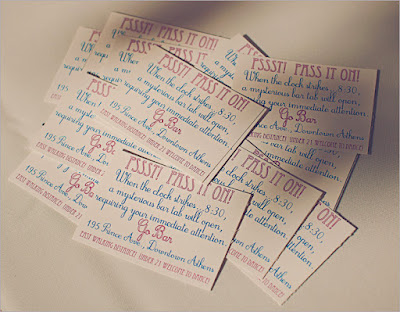 PSSST! PASS IT ON!
PSSST! PASS IT ON!
When the clock strikes, 8:30,
a mysterious bar tab will open,
your immediate attention.
Go Bar
Downtown Athens
UNDER 21 WELCOME TO DANCE!
PSSST! PASS IT ON!
When the clock strikes, 8:30,
a mysterious bar tab will open,
requiring your immediate attention.
Go Bar
195 Prince Ave., Downtown Athens
EASY WALKING DISTANCE! UNDER 21 WELCOME TO DANCE!
PASS IT ON!
the clock strikes, 8:30,
bar tab will open,
immediate attention.
Go Bar
Downtown Athens
WELCOME TO DANCE!
PSSST! PASS IT ON!
When the clock strikes, 8:30,
a mysterious bar tab will open,
requiring your immediate attention.
Go Bar
195 Prince Ave., Downtown Athens
EASY WALKING DISTANCE! UNDER 21 WELCOME TO DANCE!
Go Ba
195 Prince Ave., Dow
EASY WALKING DISTANCE! UNDER 21